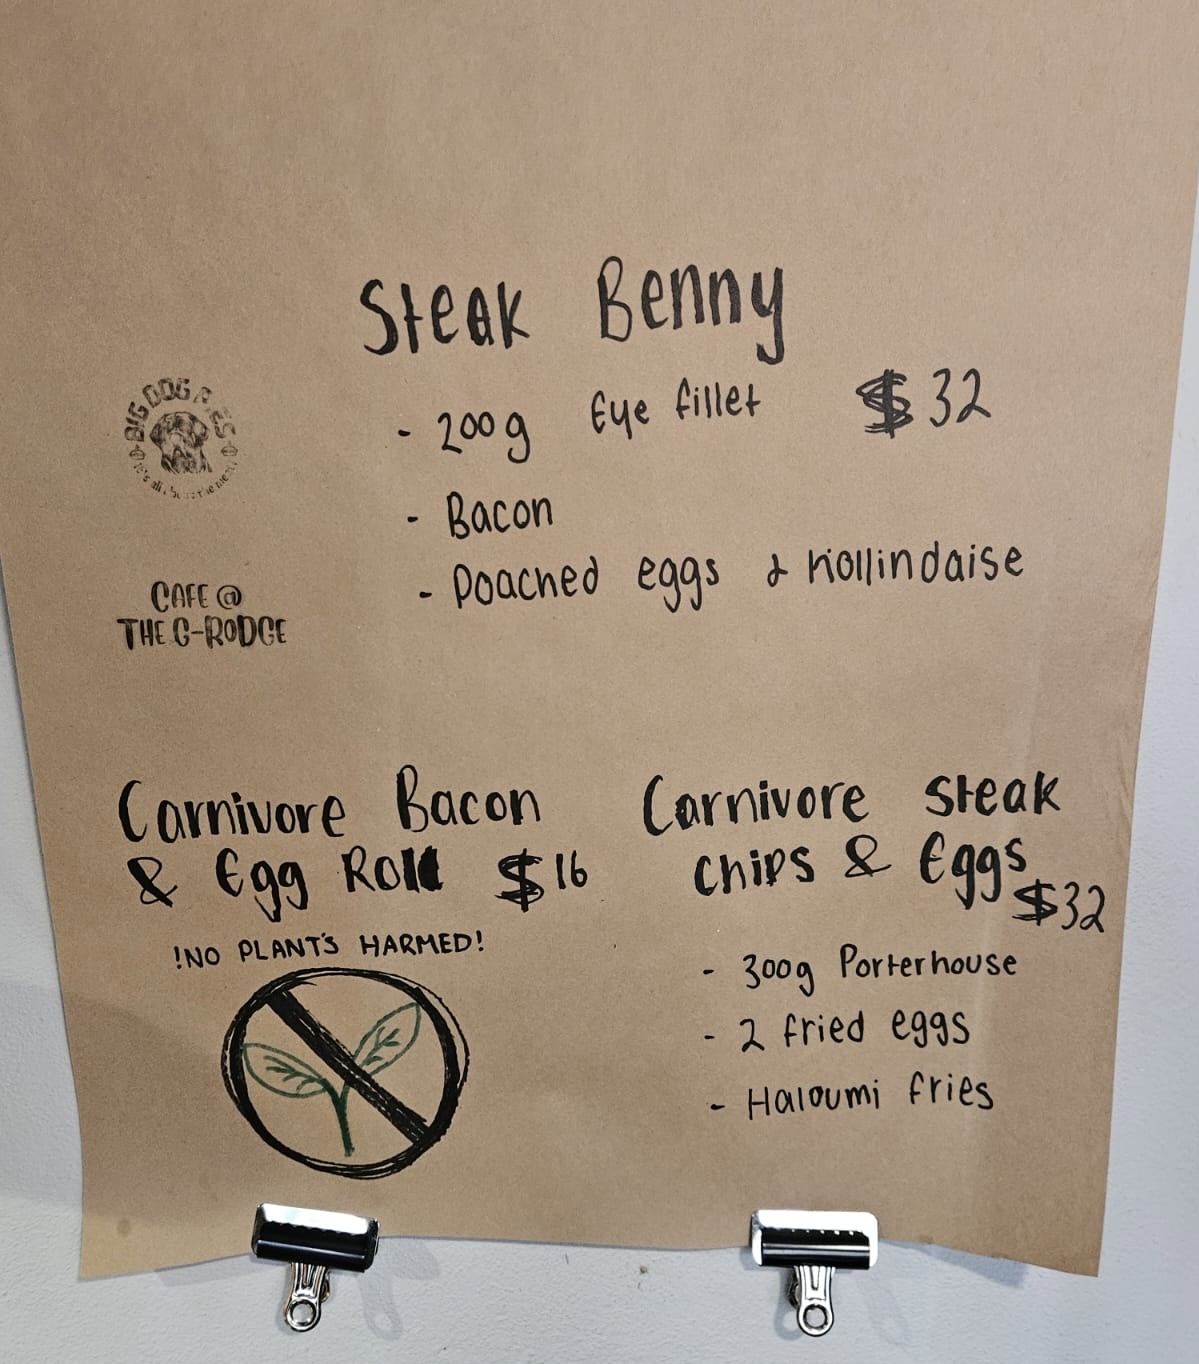 Steak Benny
- 200g Eye fillet $32
- Bacon
- Poached eggs & Hollindaise
BIG DOG PIES
it's all about the meat
CAFE @
THE G-RODGE
Carnivore Bacon
& Egg Roll $16
!NO PLANT'S HARMED!
Carnivore Steak
Chips & Eggs
$32
- 300g Porterhouse
- 2 fried eggs
- Haloumi fries